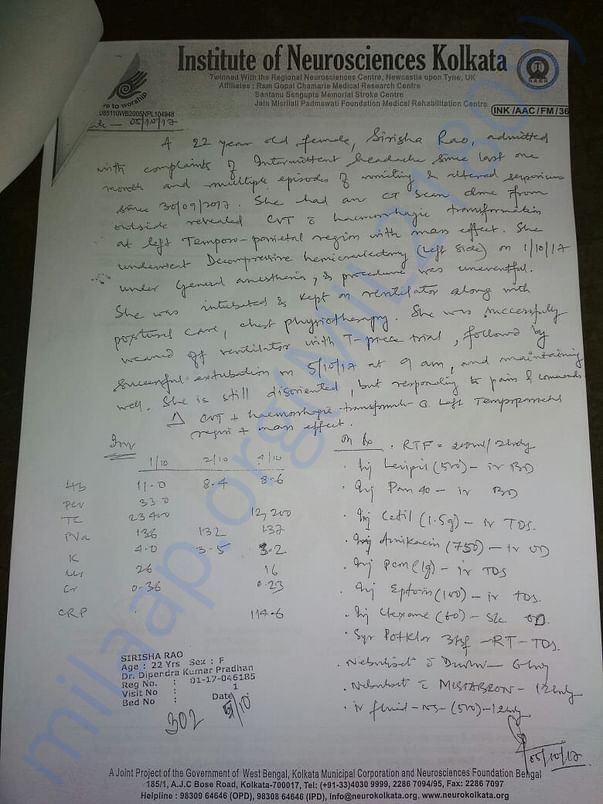 Institute of Neurosciences Kolkata
Twinned With the Regional Neurosciences Centre, Newcastle upon Tyne, UK
Affiliates : Ram Gopal Chamaria Medical Research Centre
Santanu Sengupta Memorial Stroke Centre
Jain Misrilall Padmawati Foundation Medical Rehabilitation Centre
re to worship
INK/AAC/FM/36
05/10/17
A 22 year old female, Sirisha Rao, admitted
with complaints of Intermittent headache since last one
month and multiple episodes of vomiting & altered sensorium
since 30/09/2017. She had an CT scan done from
outside revealed CVT c haemorrhagic transformation
at left Temporo-parietal region with mass effect. She
underwent Decompressive hemicraniectomy (Left side) on 1/10/17
under General anesthesia, & procedure was uneventful.
She was intubated & kept on ventilator along with
postural care, chest physiotherapy. She was successfully
weaned off ventilator with T-piece trial, followed by
successful extubation on 5/10/17 at 9 am, and maintaining
well. She is still disoriented, but responding to pain & commands
Δ CVT + haemorrhagic transformatn @ Left Temporoparietal
region + mass effect.
Inv
1/10 2/10 4/10
Hb 11.0 8.4 8.6
PCV 33.0
TC 23400 12,200
Na 136 132 137
K 4.0 3.5 3.2
Ur 26 16
Cr 0.36 0.23
CRP 114.6
. RTF = 200ml/2hrly
. Inj Levipil (500) - iv BD
. Inj Pan 40 - iv BD
. Inj Cetil (1.5g) - iv TDS.
. Inj Amikacin (750) - iv OD
. Inj PCM (1g) - iv TDS
. Inj Eptoin (100) - iv TDS.
. Inj Clexane (60) - S/c OD
. Syr Potklor 3tsf - RT - TDS.
. Nebulisatn c Duolin - 6hrly
. Nebulisatn c MISTABRON - 12hrly
. iv fluid - NS - (500) - 12hrly
05/10/17.
SIRISHA RAO
Age : 22 Yrs Sex : F
Dr. Dipendra Kumar Pradhan
Reg No. : 01-17-046185
Visit No : 1
Bed No : Date
302 5/10
A Joint Project of the Government of West Bengal, Kolkata Municipal Corporation and Neurosciences Foundation Bengal
185/1, A.J.C Bose Road, Kolkata-700017, Tel: (+91-33)4030 9999, 2286 7094/95, Fax: 2286 7097
Helpline : 98309 64646 (OPD), 98308 64646 (IPD), info@neurokolkata.org, www.neurokolkata.org